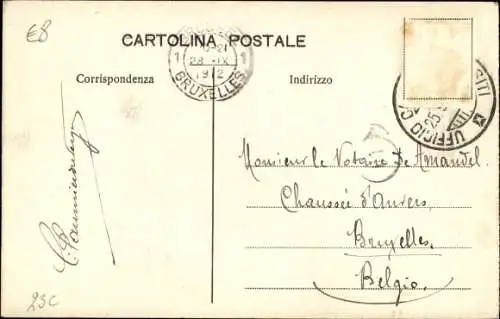 €8
CARTOLINA POSTALE
1 28 IX 1
1912
BRUXELLES
Corrispondenza
Indirizzo
UFFICIO
25
Monsieur le Notaire De Amandel.
Chaussée d'Anvers,
Bruxelles.
Belgio.
23C